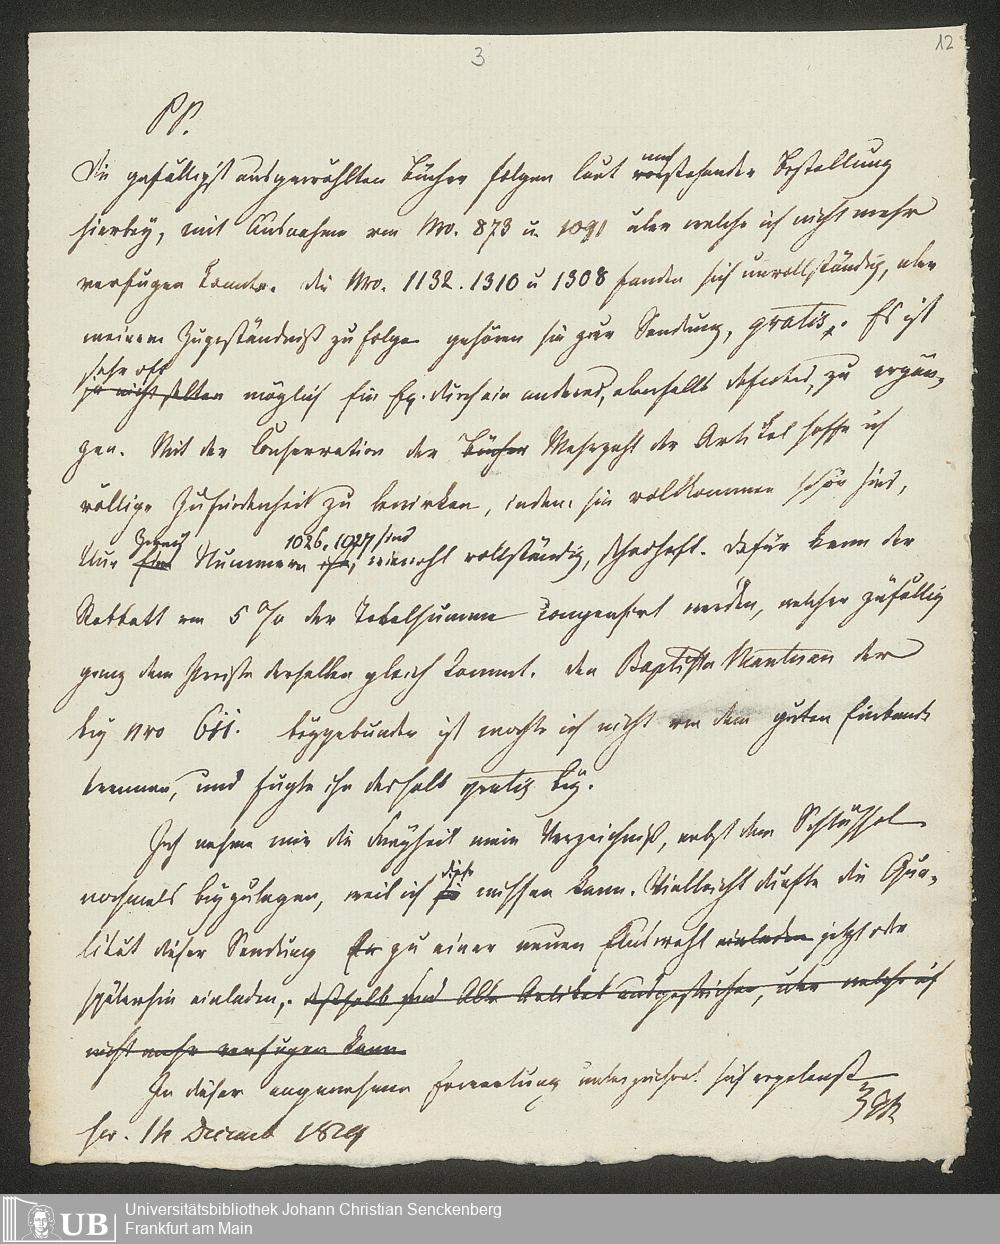 3
12
PP.
Die gefälligst ausgewählten Bücher folgen laut vorstehender nach Bestellung
hierbey, mit Ausnahme von Nro. 873 u. 1091 über welche ich nicht mehr
verfügen konnte. Die Nro. 1132. 1310 u 1308 fanden sich unvollständig, aber
meinem Zugeständniß zu folge gehören sie zur Sendung, gratis. Es ist
sehr oft
ja nicht selten möglich ein Ex. durch ein anderes, ebenfalls defectes, zu ergän-
zen. Mit der Conservation der Bücher Mehrzahl der Artikel hoffe ich
völlige Zufriedenheit zu bewirken, indem sie vollkommen schön sind,
1026, 1027 sind
Nur Nummern wiewohl vollständig, schadhaft. Dafür kann der
Rabbatt von 5 % der Totalsumme compensirt werden, welcher zufällig
ganz dem Preise derselben gleich kommt. Den Baptista Mantuan der
bey nro 611. beygebunden ist mochte ich nicht von dem guten Einbande
trennen, und fügte ihn deshalb gratis bey.
Ich nehme mir die Freyheit mein Verzeichniß, nebst dem Schlüssel
diese
nochmals beyzulegen, weil ich sie missen kann. Vielleicht dürfte die Qua-
lität dieser Sendung zu einer neuen Auswahl einladen jetzt oder
späterhin einladen, deshalb sind Alle Artikel ausgestrichen, über welche ich
nicht mehr verfügen kann.
In dieser angenehmen Erwartung unterzeichnet sich ergebenst
Decemb 1829
UB
Universitätsbibliothek Johann Christian Senckenberg
Frankfurt am Main